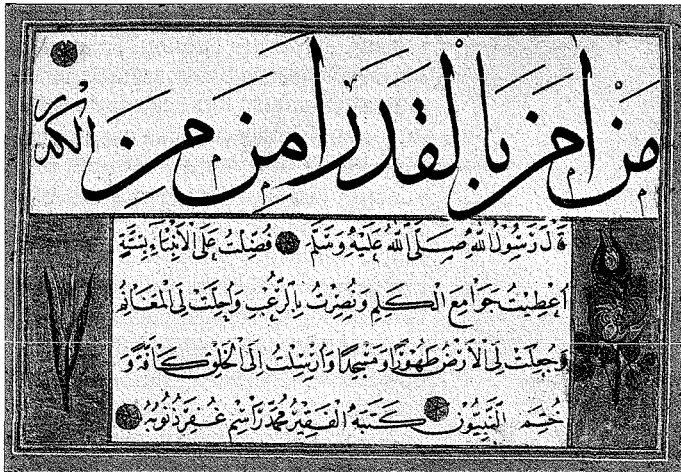 مَنْ اٰمَنَ بِالْقَدَرِ اَمِنَ مِنَ الْكَدَرِ
قَالَ رَسُولُ اللهِ صَلَّى اللهُ عَلَيْهِ وَسَلَّمَ فُضِّلْتُ عَلَى الْاَنْبِيَاءِ بِسِتَّةٍ
اُعْطِيتُ جَوَامِعَ الْكَلِمِ وَنُصِرْتُ بِالرُّعْبِ وَاُحِلَّتْ لِىَ الْمَغَانِمُ
وَجُعِلَتْ لِىَ الْاَرْضُ طَهُورًا وَمَسْجِدًا وَاُرْسِلْتُ اِلَى الْخَلْقِ كَافَّةً وَ
خُتِمَ النَّبِيُّونَ كَتَبَهُ الْفَقِيرُ مُحَمَّدْ رَاسِمْ غُفِرَ ذُنُوبُهُ